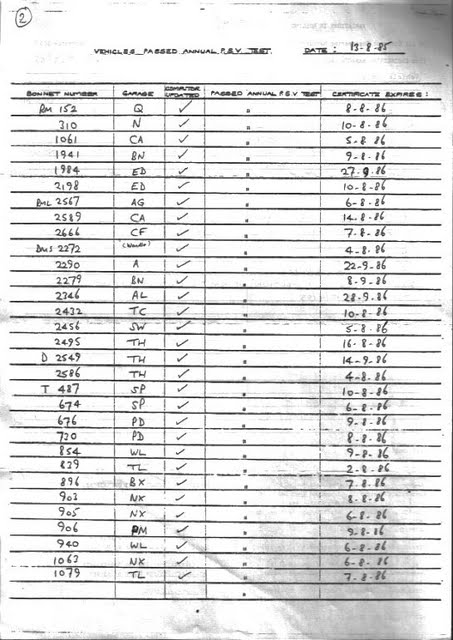 2
VEHICLES PASSED ANNUAL P.S.V. TEST. DATE: 13-8-85
BONNET NUMBER GARAGE COMPUTER UPDATED PASSED ANNUAL P.S.V TEST CERTIFICATE EXPIRES:
RM 152 Q ✓ " 8-8-86
310 N ✓ " 10-8-86
1061 CA ✓ " 5-8-86
1941 BN ✓ " 9-8-86
1984 ED ✓ " 27-9-86
2198 ED ✓ " 10-8-86
RML 2567 AG ✓ " 6-8-86
2589 CA ✓ " 14-8-86
2666 CF ✓ " 7-8-86
DMS 2272 ✓ " 4-8-86
2290 A ✓ " 22-9-86
2279 BN ✓ " 8-9-86
2346 AL ✓ " 28-9-86
2432 TC ✓ " 10-8-86
2456 SW ✓ " 5-8-86
2495 TH ✓ " 16-8-86
D 2549 TH ✓ " 14-9-86
2586 TH ✓ " 4-8-86
T 487 SP ✓ " 10-8-86
674 SP ✓ " 6-8-86
676 PD ✓ " 9-8-86
730 PD ✓ " 8-8-86
854 WL ✓ " 9-8-86
839 TL ✓ " 2-8-86
896 BX ✓ " 7-8-86
903 NX ✓ " 8-8-86
905 NX ✓ " 6-8-86
906 PM ✓ " 9-8-86
940 WL ✓ " 6-8-86
1063 NX ✓ " 6-8-86
1079 TL ✓ " 7-8-86
"